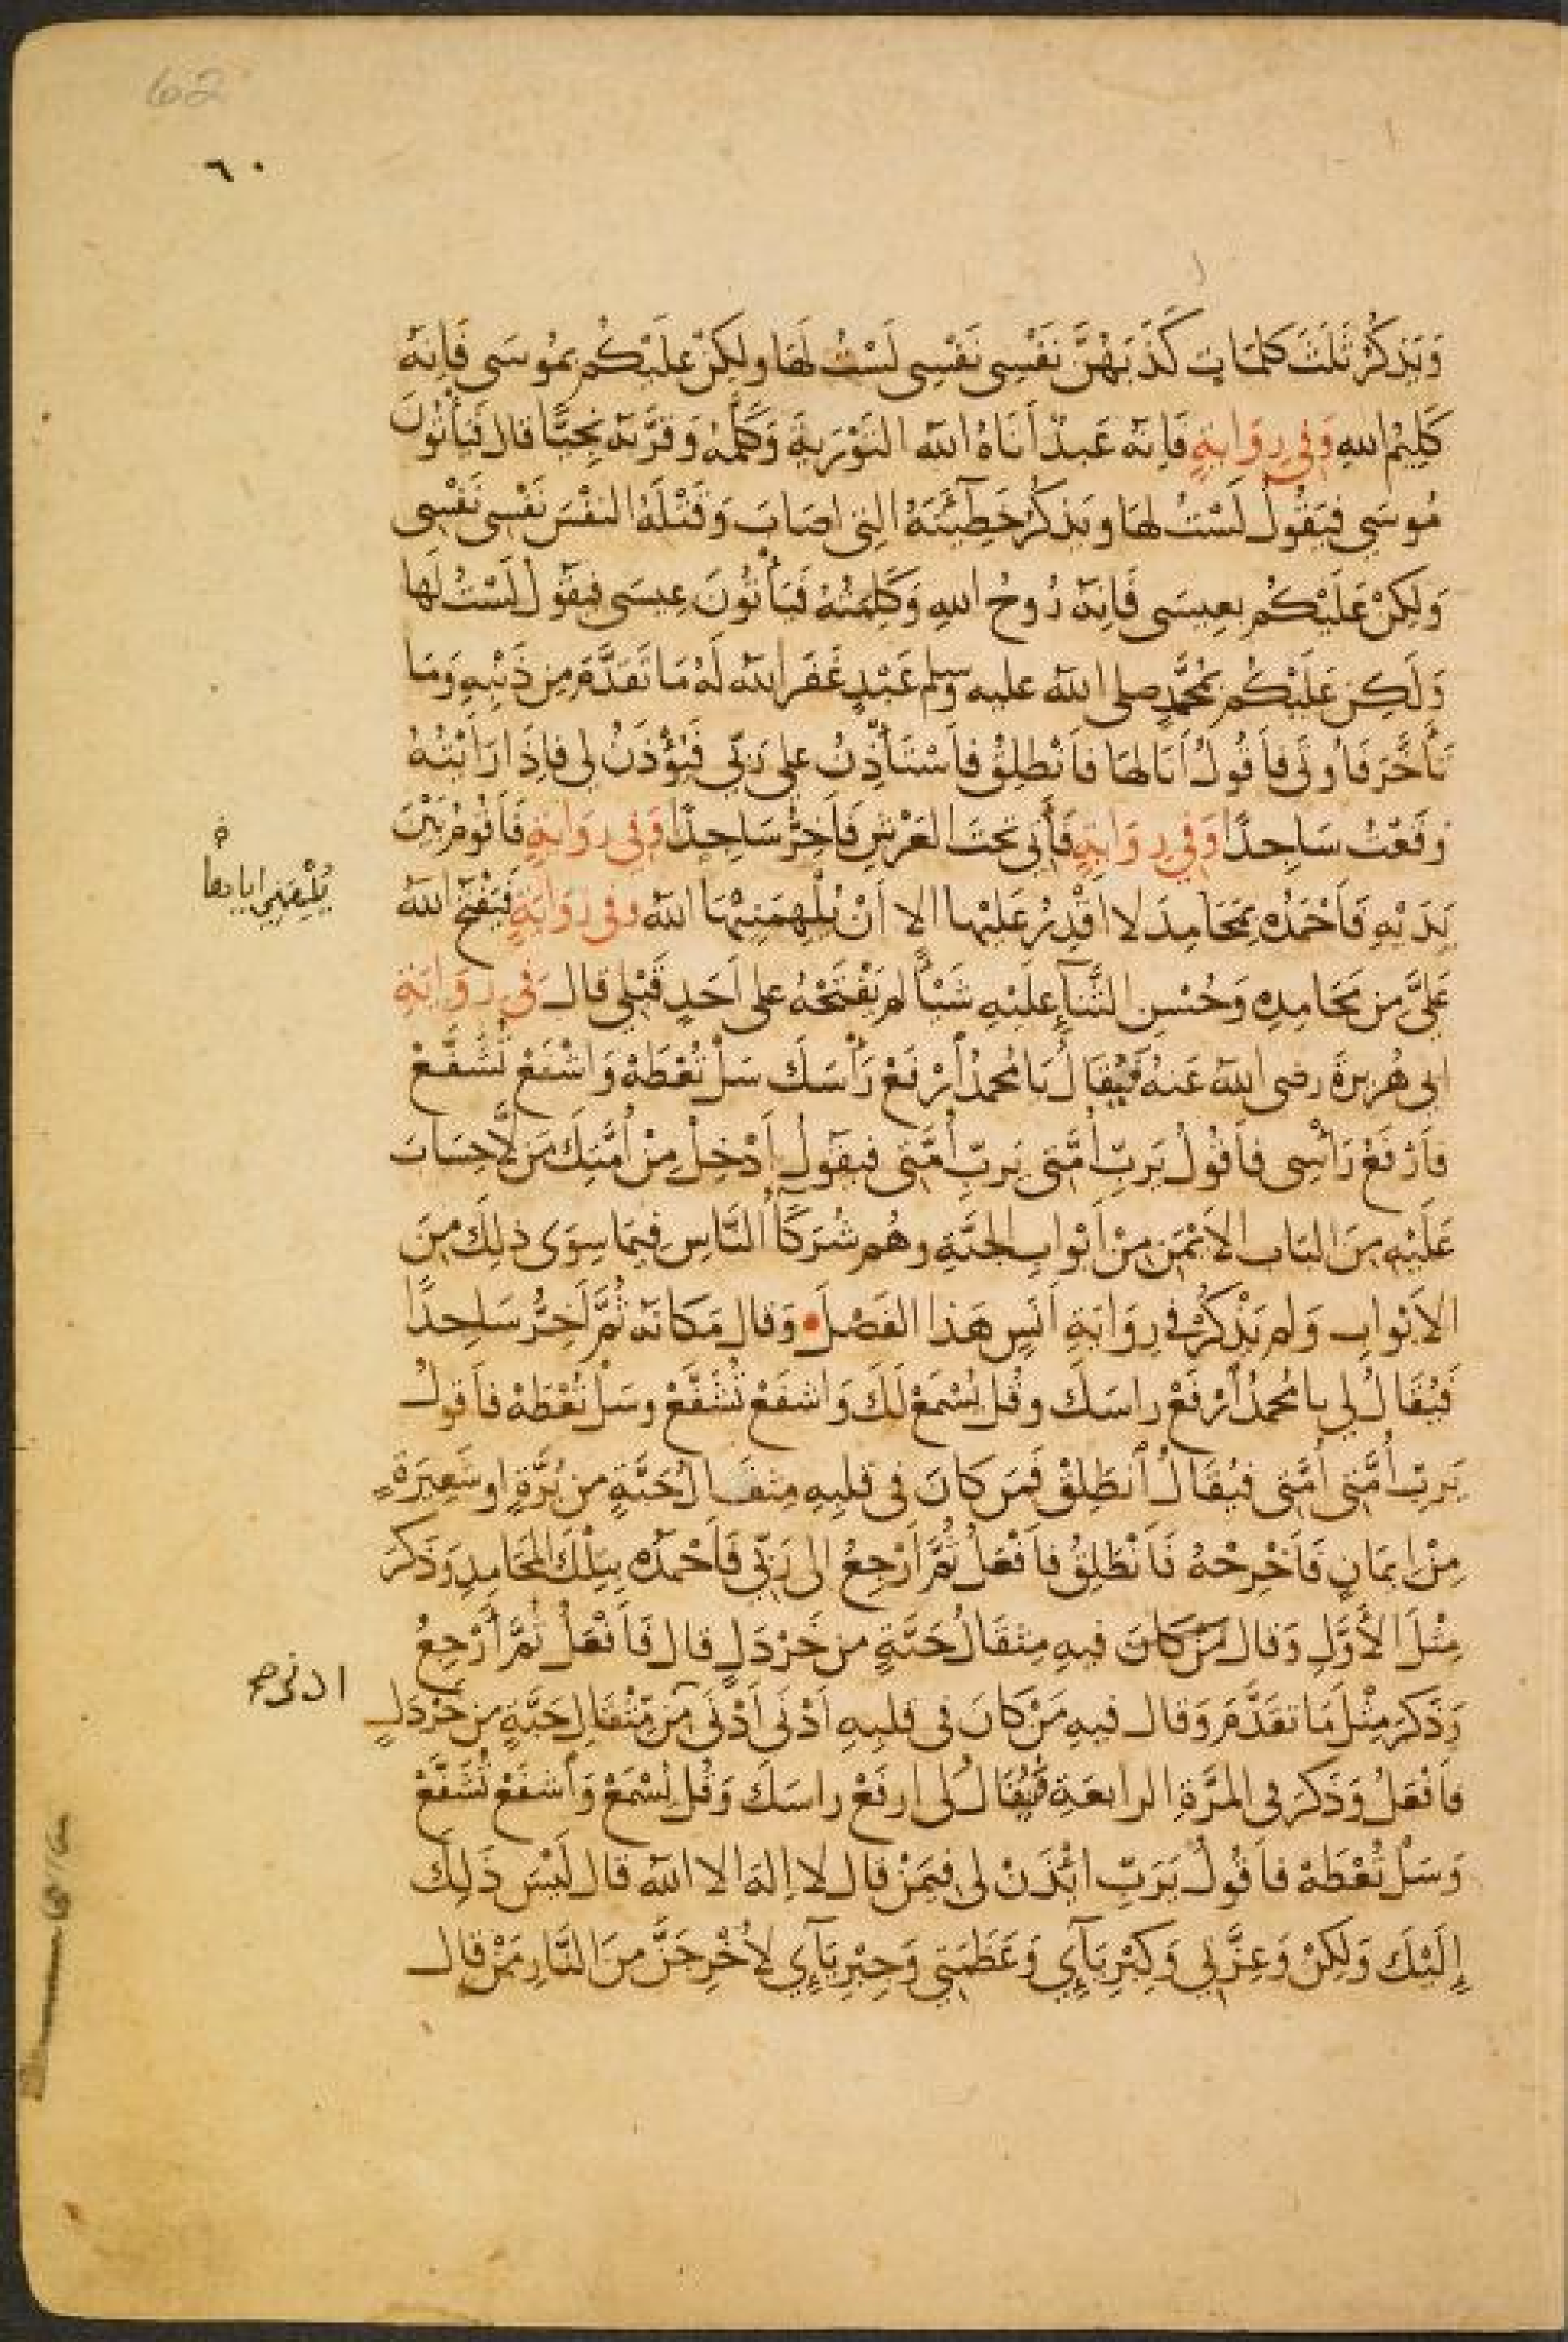 62
٦٠
وَيَذكُرُ ثَلَثَ كلمَاتٍ كَذَبَهُنَّ نَفْسِي نَفْسِي لَسْتُ لَهَا ولكِنْ علَيْكُم بمُوسَى فَإنهُ
كَلِيمُ اللهِ وَفِي رِوَايَةٍ فَإنهُ عَبدٌ أتَاهُ اللهُ التَّوْرَيةَ وَكَلَّمهُ وَقرَّبَهُ نَجِيًّا قال فَيَأْتُونَ
مُوسَى فيَقُولُ لَسْتُ لهَا ويَذكُرُ خَطِيئَتَهُ التِي اصَابَ وَقَتْلَهُ النفْسَ نَفْسِي نَفْسِي
وَلكِنْ عَلَيْكُم بعِيسَى فَإِنهُ رُوحُ اللهِ وَكَلِمَتُهُ فَيَأْتُونَ عِيسَى فيقُولُ لَسْتُ لَهَا
وَلَكِن عَلَيْكُم بمُحمَّدٍ صلى الله عليه وسلم عَبْدٍ غَفَر اللهُ لَهُ مَا تَقَدَّمَ مِن ذَنْبِهِ وَمَا
تَأَخَّرَ فَأُوتَى فأَقُولُ أَنَا لهَا فأَنْطلِقُ فأَسْتَأْذِنُ على رَبِّي فَيُؤْذَنُ لِي فإِذَا رَأَيْتُهُ
وَقَعْتُ سَاجِدًا وَفِي رِوَايَةٍ فَأتِي تحتَ العَرْشِ فَأخِرُّ سَاجِدًا وَفِي رِوَايَةٍ فَأقُومُ بَيْنَ
يَدَيْهِ فَأَحْمَدُه بمَحَامِدَ لا أقْدِرُ عَلَيْهَا إلا أنْ يُلْهِمَنِيهَا اللهُ وفِي رِوَايَةٍ فَيَفْتَحُ اللهُ
يُلْهِمُنِي إياها خ
عَلَيَّ من مَحَامِدِهِ وَحُسْنِ الثَّنَآءِ علَيْهِ شَيْأً لم يَفْتَحْهُ على أَحَدٍ قَبْلِي قال فِي رِوَايَةِ
ابي هُرَيرةَ رضى الله عَنهُ فَيُقَالُ يَا مُحمدُ ارْفَعْ رَأْسَكَ سَلْ تُعْطَهْ وَاشْفَعْ تُشَفَّعْ
فأَرْفَعُ رَأْسِي فأَقُولُ يَربِّ أُمَّتِي يَربِّ أُمَّتِي فيقُولُ أَدْخِلْ مِنْ أُمَّتِكَ مَن لَّا حِسَابَ
عَلَيْهِ مِنَ البَابِ الأيْمَنِ مِنْ أَبْوَابِ الجَنَّةِ وهُم شُرَكَآُ النَّاسِ فِيمَا سِوَى ذلِكَ مِنَ
الابْوابِ وَلم يَذْكُرْ في رِوَايةِ أنَسٍ هَذا الفَصْلَ وَقال مَكانَهُ ثُمَّ أَخِرُّ سَاجِدًا
فَيُقَالُ لِي يا مُحمدُ ارْفَعْ راسَكَ وقُل يُسْمَعْ لَكَ وَاشفَعْ تُشَفَّعْ وسَلْ تُعْطَهْ فأَقولُ
يَربِّ أُمَّتِي أُمَّتِي فيُقَالُ انْطَلِقْ فَمَن كانَ فِي قلبِهِ مِثقَالُ حَبَّةٍ مِن بُرَّةٍ او شَعِيرَةٍ
مِنْ إيمَانٍ فَأَخْرِجْهُ فَأَنْطَلِقُ فأَفْعَلُ ثُمَّ أَرْجِعُ الى رَبِّي فَأَحْمَدُه بِتِلْكَ المَحَامِدِ وَذَكَرَ
مِثْلَ الأَوَّلِ وَقال مَن كانَ فيهِ مِثقَالُ حَبَّةٍ من خَرْدَلٍ قال فَأَفْعَلُ ثُمَّ أَرْجِعُ
وَذَكرَ مِثْلَ مَا تقَدَّمَ وَقال فيهِ مَنْ كانَ في قلبِهِ أَدْنَى أَدْنَى مِن مِثْقَالِ حَبَّةٍ مِن خَرْدَلٍ
ادنى صح
فأَفْعَلُ وَذَكرَ في المَرَّةِ الرابعَةِ فَيُقَالُ لي ارفَعْ راسَكَ وَقُل يُسْمَعْ وَاشفَعْ تُشَفَّعْ
وَسَلْ تُعْطَهْ فأَقُولُ يَرَبِّ ائْذَنْ لي فِيمَنْ قال لا إلهَ الا اللهُ قال لَيْسَ ذَلِكَ
إِلَيْكَ وَلكِنْ وَعِزَّتِي وَكِبْرِيَآءِي وَعَظَمَتِي وَجِبْرِيَآءِي لأُخْرِجَنَّ مِنَ النَّارِ مَنْ قال